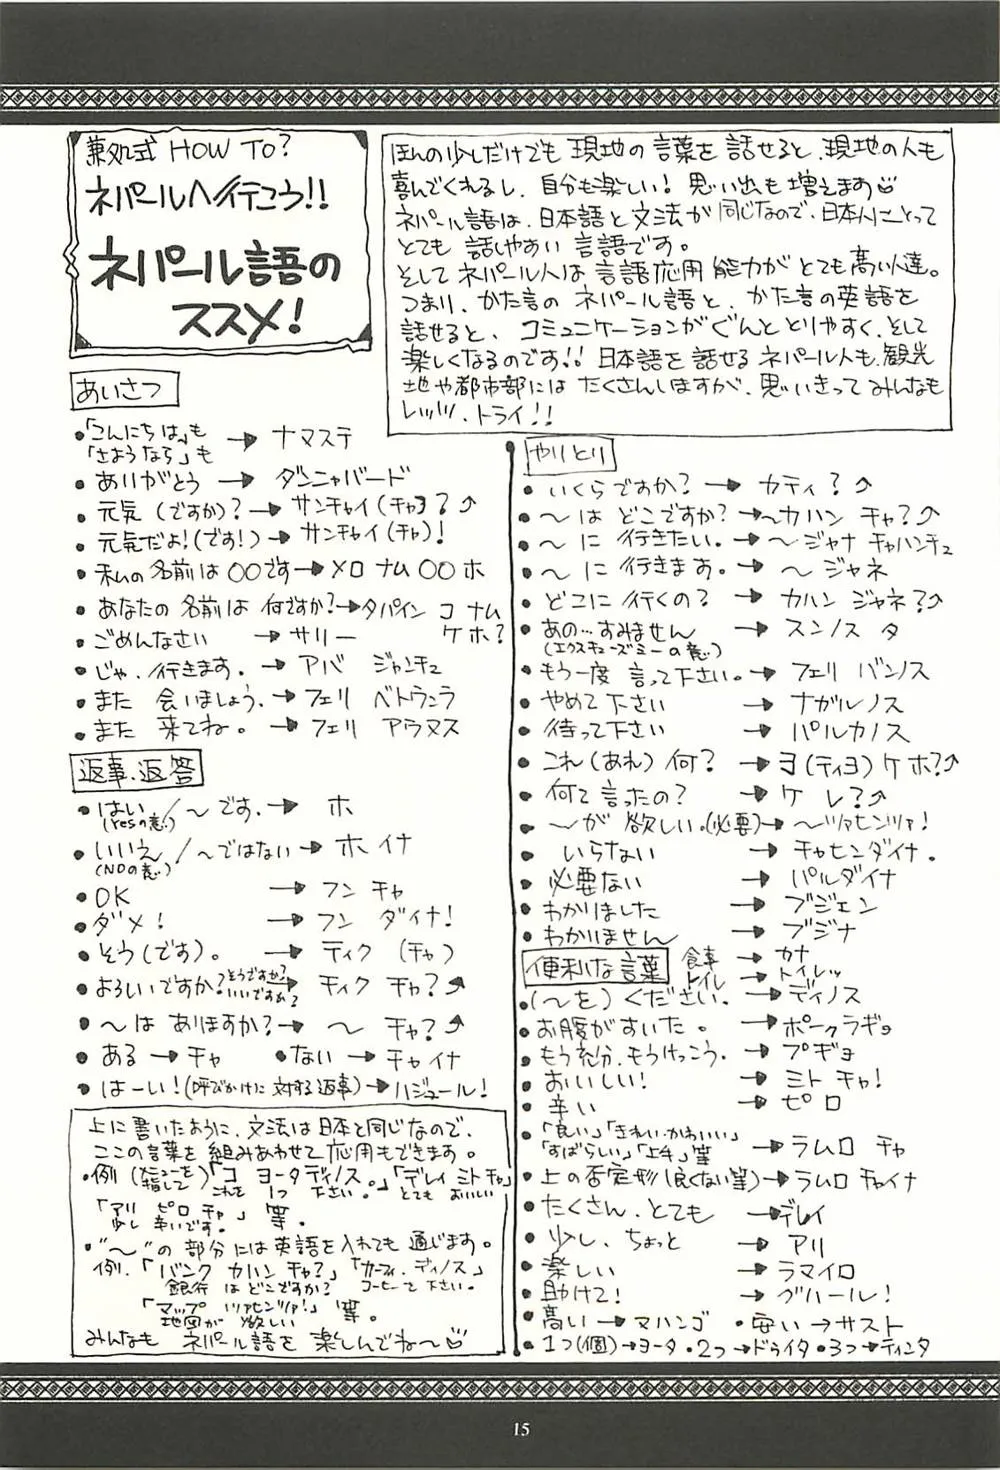 兼処式 HOW TO?
ネパールへ行こう!!
ネパール語の
ススメ!
ほんの少しだけでも 現地の 言葉を 話せると、現地の人も
喜んでくれるし、自分も楽しい! 思い出も 増えます
ネパール語は、日本語と 文法が 同じなので、日本人にとって
とても 話しやすい 言語です。
そして ネパール人は 言語応用 能力が とても高い人達。
つまり、かた言の ネパール語と、かた言の英語を
話せると、コミュニケーションがぐんと とりやすく、そして
楽しくなるのです!! 日本語を 話せる ネパール人も、観光
地や都市部には たくさんいますが、思いきって みんなも
レッツ、トライ!!
あいさつ
・「こんにちは」も
「さようなら」も → ナマステ
・ありがとう → ダンニャバード
・元気(ですか)? → サンチャイ(チャ)?↗
・元気だよ!(です!) → サンチャイ(チャ)!
・私の名前は〇〇です → メロ ナム 〇〇 ホ
・あなたの 名前は 何ですか? → タパイン コ ナム
ケ ホ?
・ごめんなさい → サリー
・じゃ、行きます。 → アバ ジャンチュ
・また 会いましょう。 → フェリ ベトウンラ
・また 来てね。 → フェリ アウヌス
返事、返答
・はい。/〜です。 → ホ
(Yesの意)
・いいえ/〜ではない → ホイナ
(NOの意)
・OK → フン チャ
・ダメ! → フン ダイナ!
・そう(です)。 → ティク (チャ)
・よろしいですか? そうですか? いいですか? → ティク チャ?↗
・〜は ありますか? → 〜 チャ?↗
・ある → チャ ・ない → チャイナ
・はーい!(呼びかけに 対する返事) → ハジュール!
上に書いたように、文法は日本と同じなので、
ここの言葉を 組みあわせて 応用もできます。
・例(メニューを指して)「コ ヨータ ディノス。」「デレイ ミト チャ」
これを 1つ 下さい。 とても おいしい
「アリ ピロ チャ」等。
少し 辛いです。
・"〜"の 部分には 英語を 入れても 通じます。
例.「バンク カハン チャ?」「カーフィ、ディノス」
銀行 は どこですか? コーヒー 下さい。
「マップ ツァヒンツァ!」等。
地図が 欲しい
みんなも ネパール語を 楽しんでね〜
やりとり
・いくらですか? → カティ?↗
・〜は どこですか? → 〜カハン チャ?↗
・〜に 行きたい。 → 〜ジャナ チャハンチュ
・〜に 行きます。 → 〜ジャネ
・どこに 行くの? → カハン ジャネ?↗
・あの…すみません → スンノス タ
(エクスキューズミーの意)
・もう一度 言って下さい。 → フェリ バンノス
・やめて 下さい → ナガルノス
・待って下さい → パルカノス
・これ(あれ) 何? → ヨ(ティヨ) ケ ホ?↗
・何て 言ったの? → ケ レ?↗
・〜が 欲しい。(必要) → 〜ツァヒンツァ!
・いらない → チャヒンダイナ。
・必要ない → パルダイナ
・わかりました → ブジェン
・わかりません → ブジナ
便利な言葉
食事 → カナ
トイレ → トイレッ
・(〜を)ください。 → ディノス
・お腹がすいた。 → ポークラギョ
・もう充分、もうけっこう。 → プギョ
・おいしい! → ミト チャ!
・辛い → ピロ
・「良い」「きれい・かわいい」
「すばらしい」「上手」等 → ラムロ チャ
・上の否定形(良くない等) → ラムロ チャイナ
・たくさん、とても → デレイ
・少し、ちょっと → アリ
・楽しい → ラマイロ
・助けて! → グハール!
・高い → マハンゴ ・安い → サスト
・1つ(個) → ヨータ ・2つ → ドゥイタ ・3つ → ティンタ
15